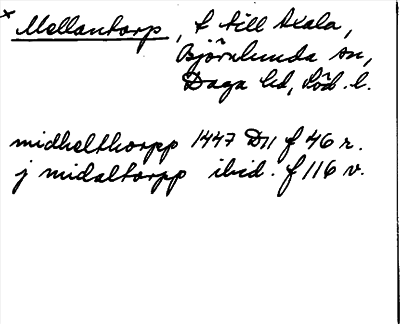 × Mellantorp, t till Axala,
Björnlunda sn,
Daga hd, Söd. l.
midhelthorpp 1447 D11 f 46 r.
j midaltorpp ibid. f 116 v.